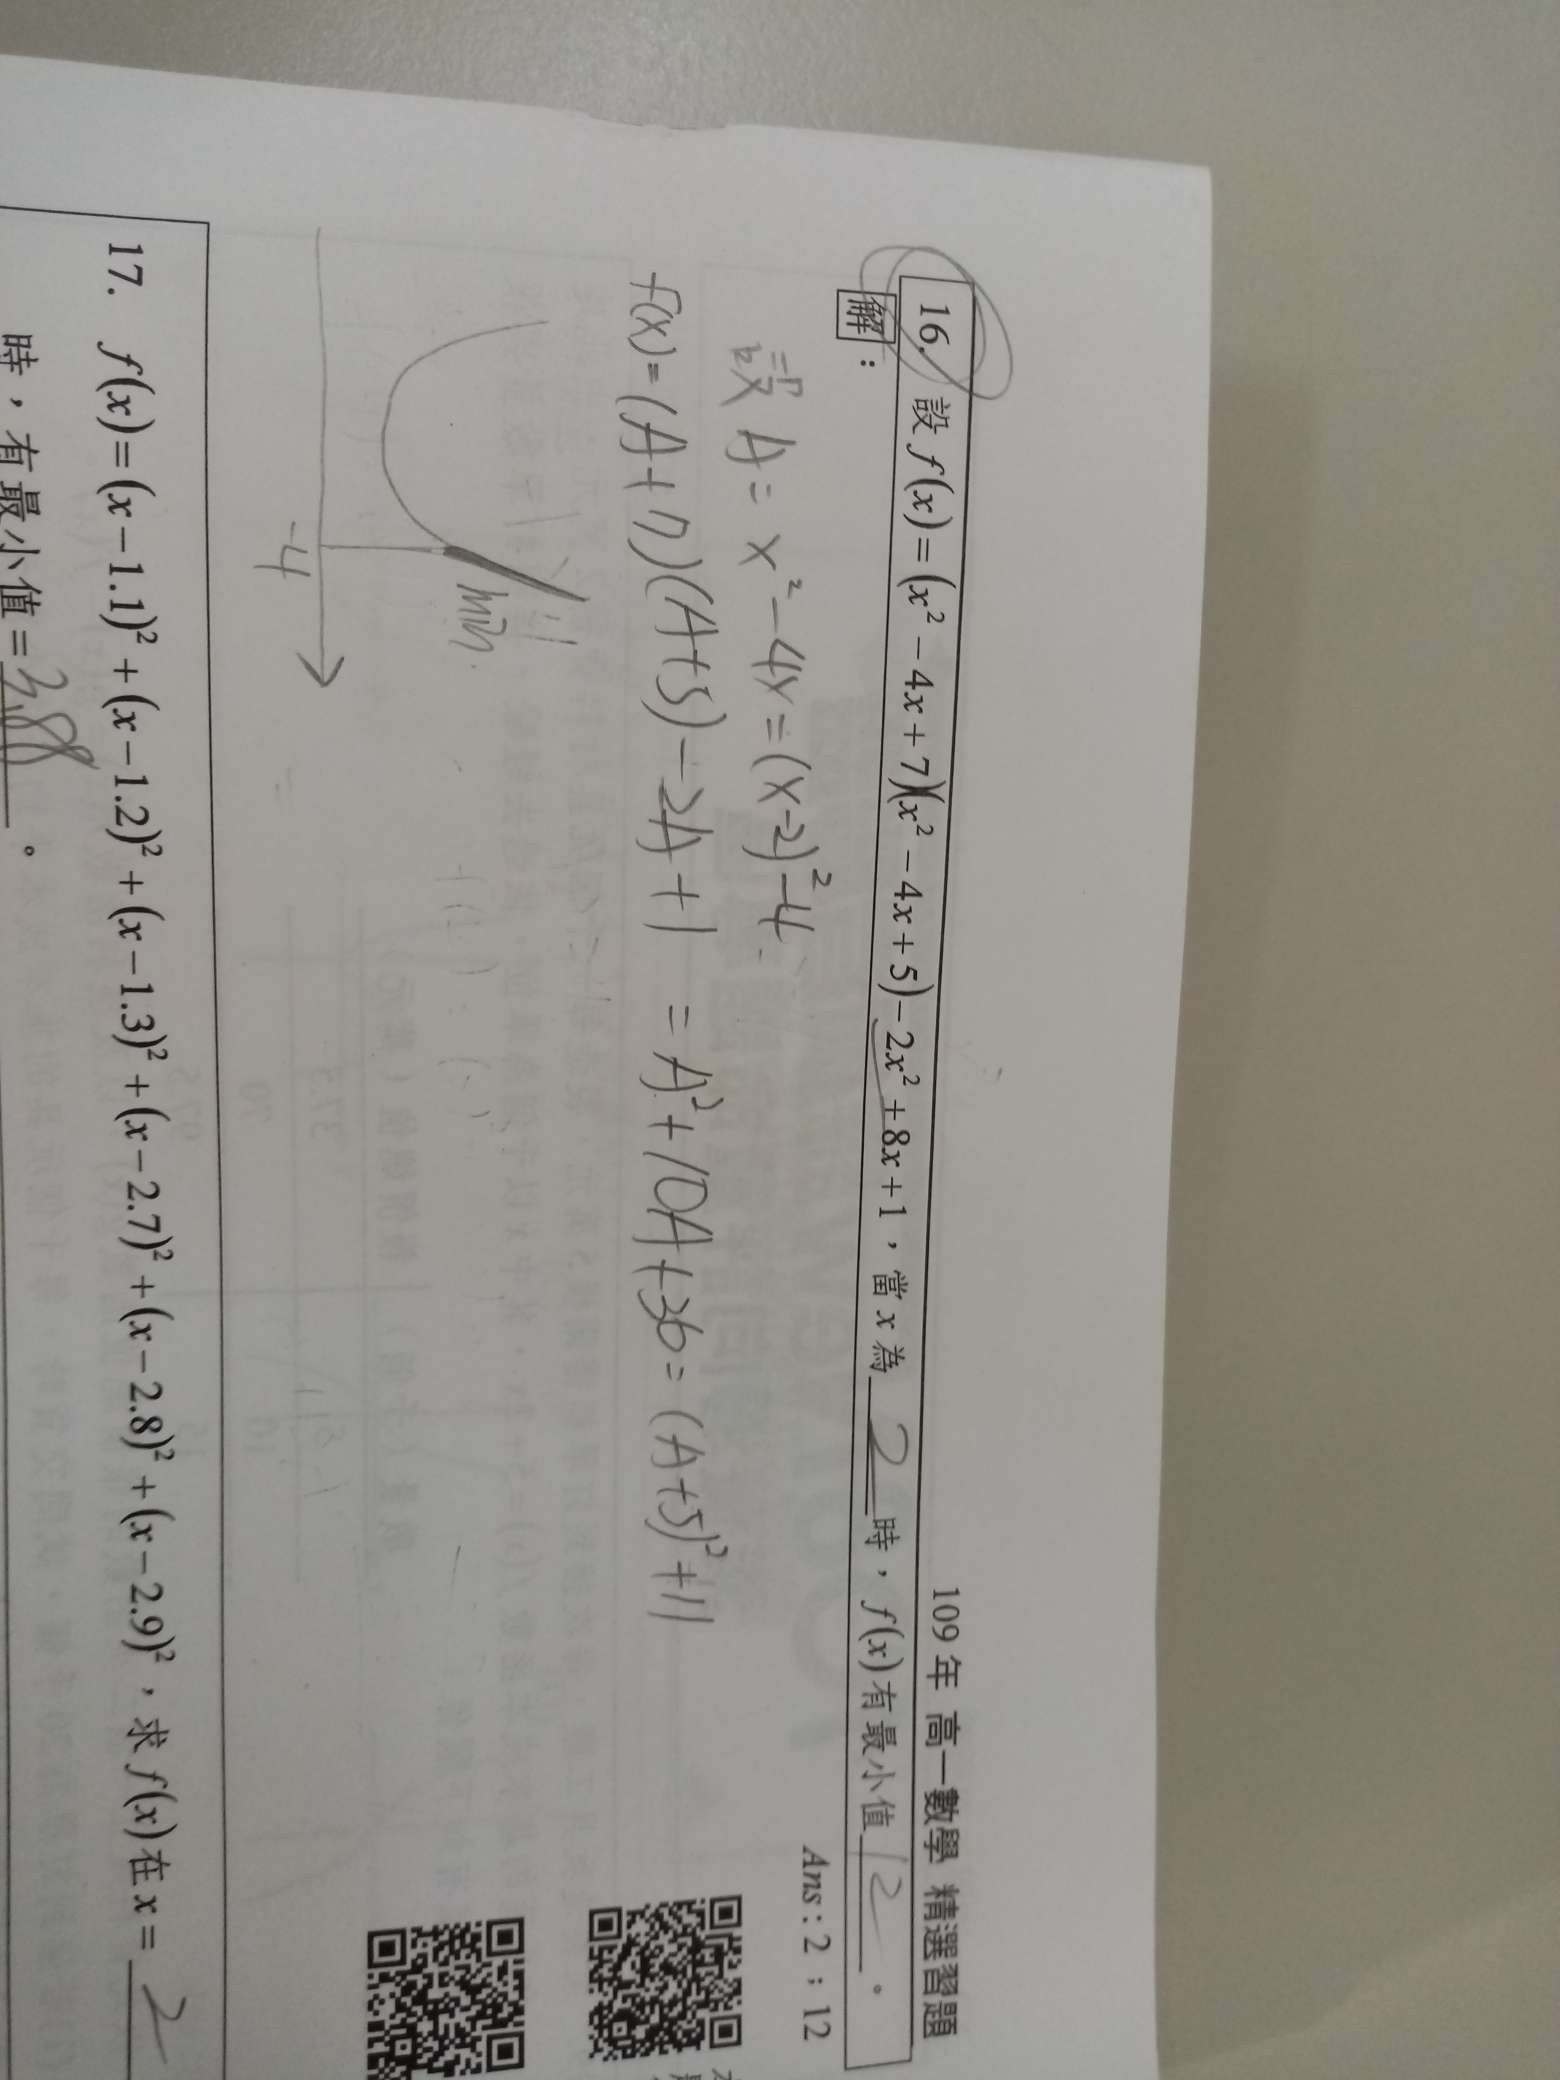 109年 高一數學 精選習題
16. 設 f(x)=(x²−4x+7)(x²−4x+5)−2x²+8x+1,當 x 為 2 時,f(x)有最小值 12 。
解:
Ans:2;12
設 A = x²−4x = (x−2)²−4
f(x) = (A+7)(A+5)−2A+1 = A²+10A+36 = (A+5)²+11
min.
−4
17. f(x)=(x−1.1)²+(x−1.2)²+(x−1.3)²+(x−2.7)²+(x−2.8)²+(x−2.9)²,求 f(x)在 x= 2
時,有最小值=
。